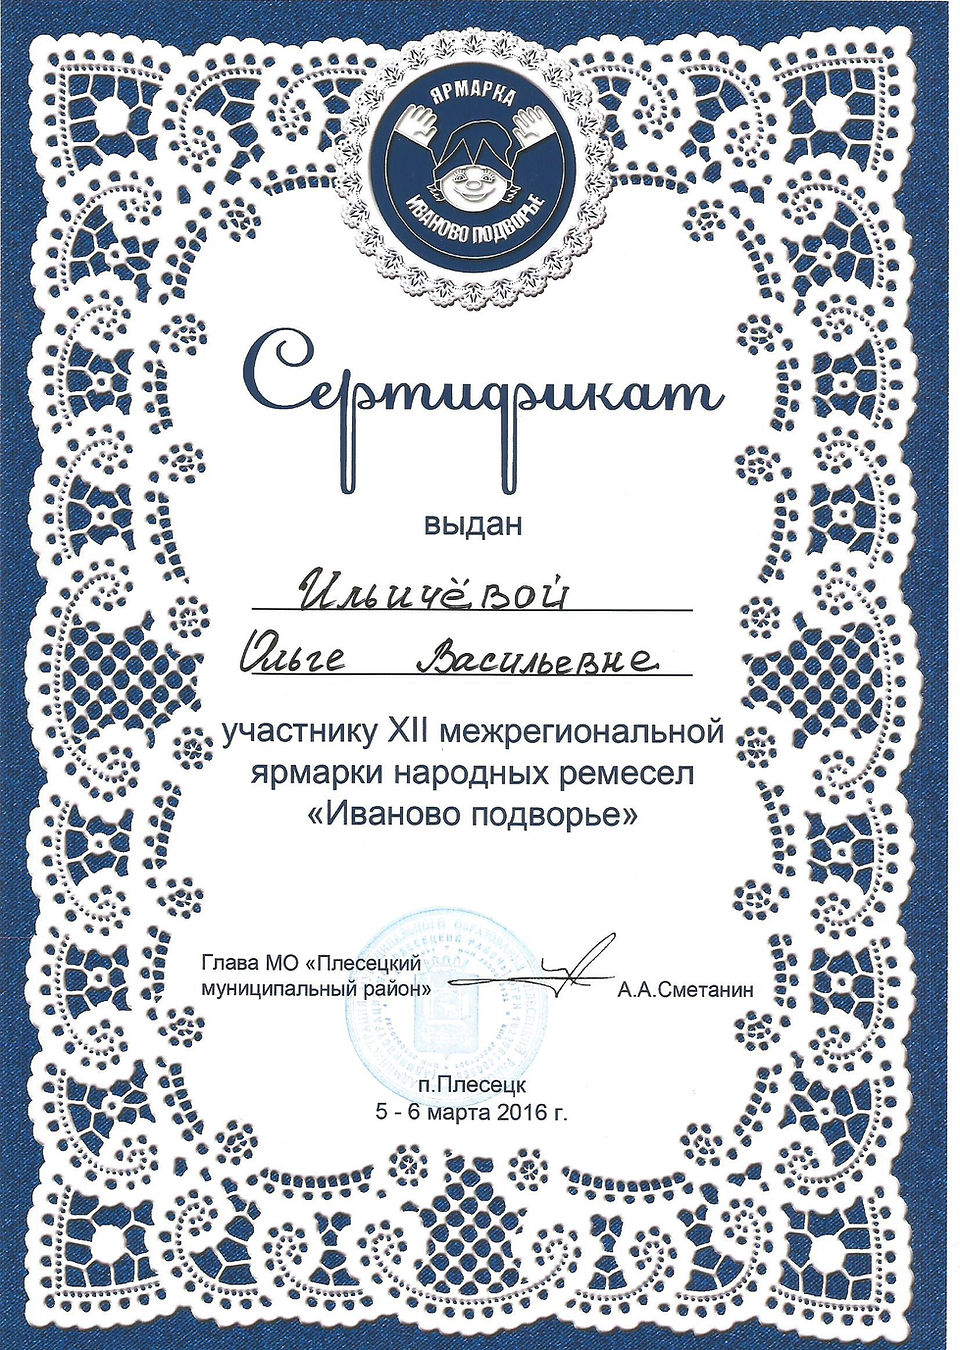 ЯРМАРКА
ИВАНОВО ПОДВОРЬЕ
Сертификат
выдан
Ильичёвой
Ольге Васильевне
участнику XII межрегиональной
ярмарки народных ремесел
«Иваново подворье»
Глава МО «Плесецкий
муниципальный район»
А.А.Сметанин
п.Плесецк
5 - 6 марта 2016 г.